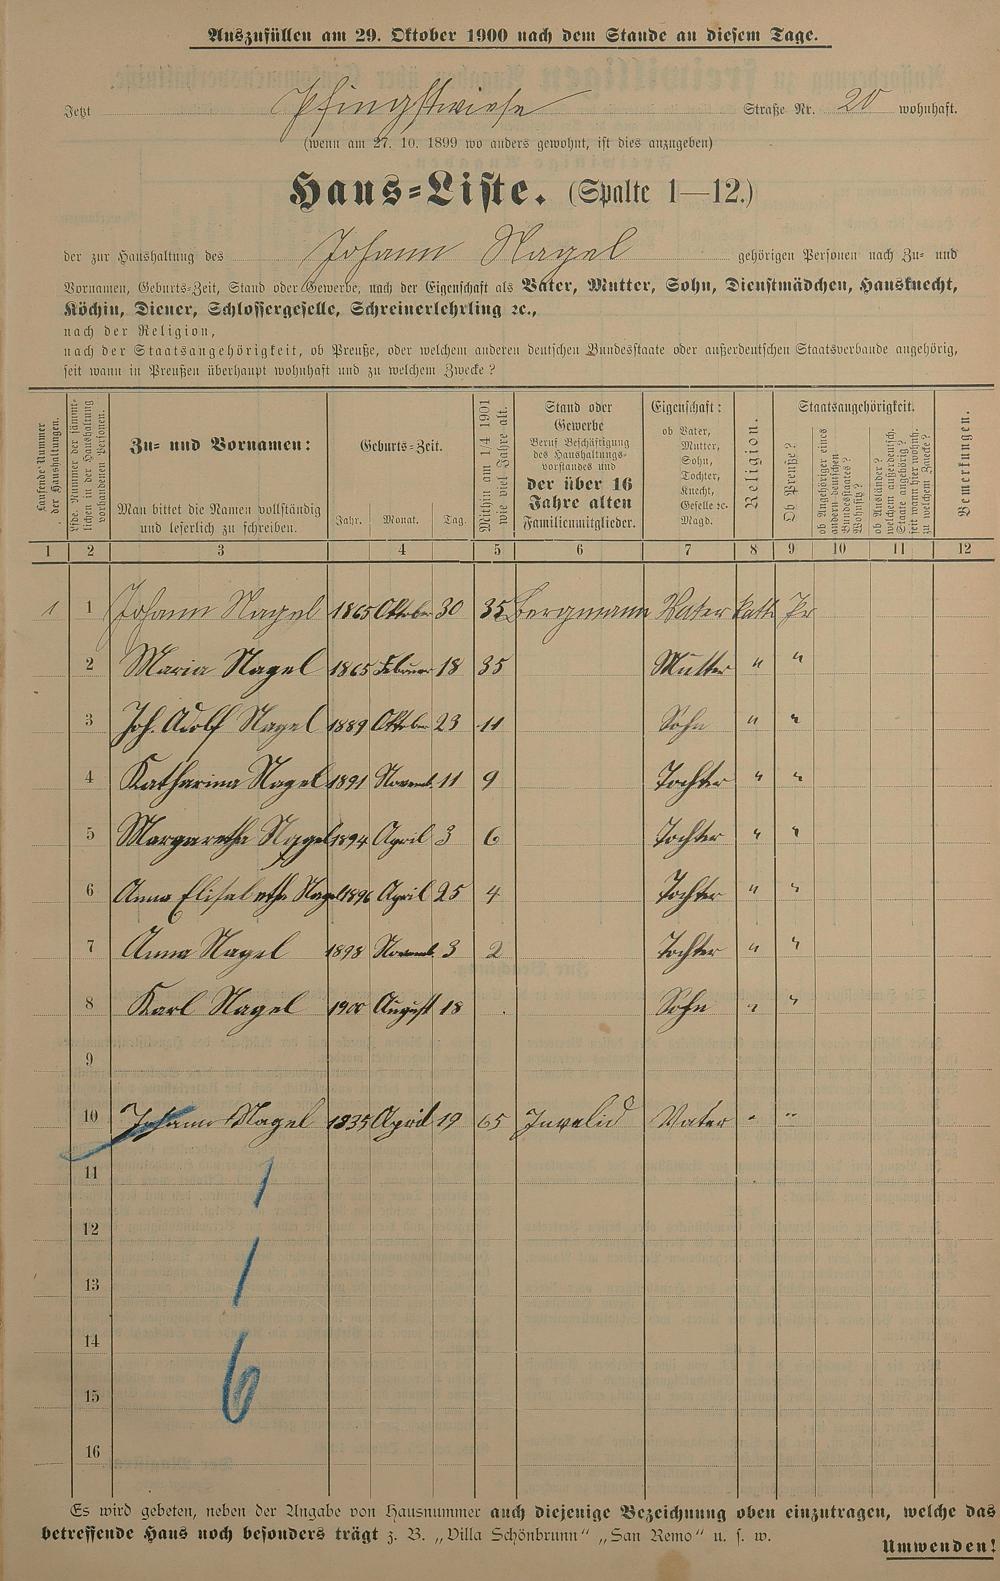 Auszufüllen am 29. Oktober 1900 nach dem Stande an diesem Tage.
Jetzt Pfingstwiese Straße Nr. 20 wohnhaft.
(wenn am 27. 10. 1899 wo anders gewohnt, ist dies anzugeben)
Haus-Liste. (Spalte 1—12.)
der zur Haushaltung des Johann Nagel gehörigen Personen nach Zu- und
Vornamen, Geburts-Zeit, Stand oder Gewerbe, nach der Eigenschaft als Vater, Mutter, Sohn, Dienstmädchen, Hausknecht,
Köchin, Diener, Schlossergeselle, Schreinerlehrling ꝛc.,
nach der Religion,
nach der Staatsangehörigkeit, ob Preuße, oder welchem anderen deutschen Bundesstaate oder außerdeutschen Staatsverbande angehörig,
seit wann in Preußen überhaupt wohnhaft und zu welchem Zwecke?
Laufende Nummer
der Haushaltungen.
lfde. Nummer der sämmt-
lichen in der Haushaltung
vorhandenen Personen.
Zu- und Vornamen:
Man bittet die Namen vollständig
und leserlich zu schreiben.
Geburts-Zeit.
Jahr. Monat. Tag.
Mithin am 1/4 1901
wie viel Jahre alt.
Stand oder
Gewerbe
Beruf Beschäftigung
des Haushaltungs-
vorstandes und
der über 16
Jahre alten
Familienmitglieder.
Eigenschaft:
ob Vater,
Mutter,
Sohn,
Tochter,
Knecht,
Geselle ꝛc.
Magd.
Religion.
Staatsangehörigkeit.
Ob Preuße?
ob Angehöriger eines
andern deutschen
Bundesstaates?
Wohnsitz?
ob Ausländer?
welchem außerdeutsch.
Staate angehörig?
seit wann hier wohnh.
zu welchem Zwecke?
Bemerkungen.
1 2 3 4 5 6 7 8 9 10 11 12
1 1 Johann Nagel 1865 Oktober 30 35 Bergmann Vater kath Pr
2 Maria Nagel 1865 Februar 18 35 Mutter " "
3 Joh. Adolf Nagel 1889 Oktober 23 11 Sohn " "
4 Katharina Nagel 1891 Novemb. 11 9 Tochter " "
5 Margaretha Nagel 1894 April 3 6 Tochter " "
6 Anna Elisabetha Nagel 1896 April 25 4 Tochter " "
7 Anna Nagel 1898 Novemb. 3 2 Tochter " "
8 Karl Nagel 1900 August 18 Sohn " "
9
10 Johann Nagel 1835 April 19 65 Invalid Vater " "
11 1
12
13 1
14
15 6
16
Es wird gebeten, neben der Angabe von Hausnummer auch diejenige Bezeichnung oben einzutragen, welche das
betreffende Haus noch besonders trägt z. B. „Villa Schönbrunn“ „San Remo“ u. s. w.
Umwenden!